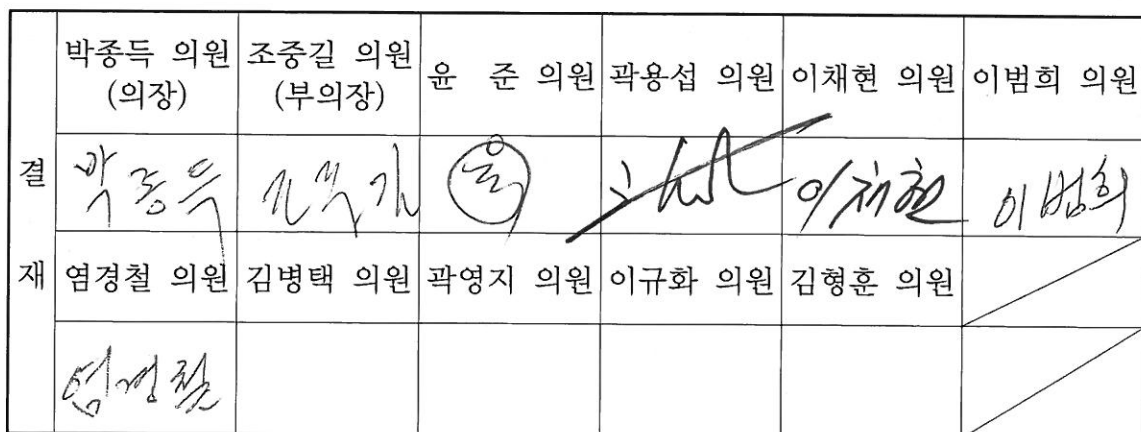 박종득 의원 조중길 의원 윤 준 의원 곽용섭 의원 이채현 의원 이범희 의원
(의장) (부의장)
결
박종득 조중길 윤 이채현 이범희
재 염경철 의원 김병택 의원 곽영지 의원 이규화 의원 김형훈 의원
염경철